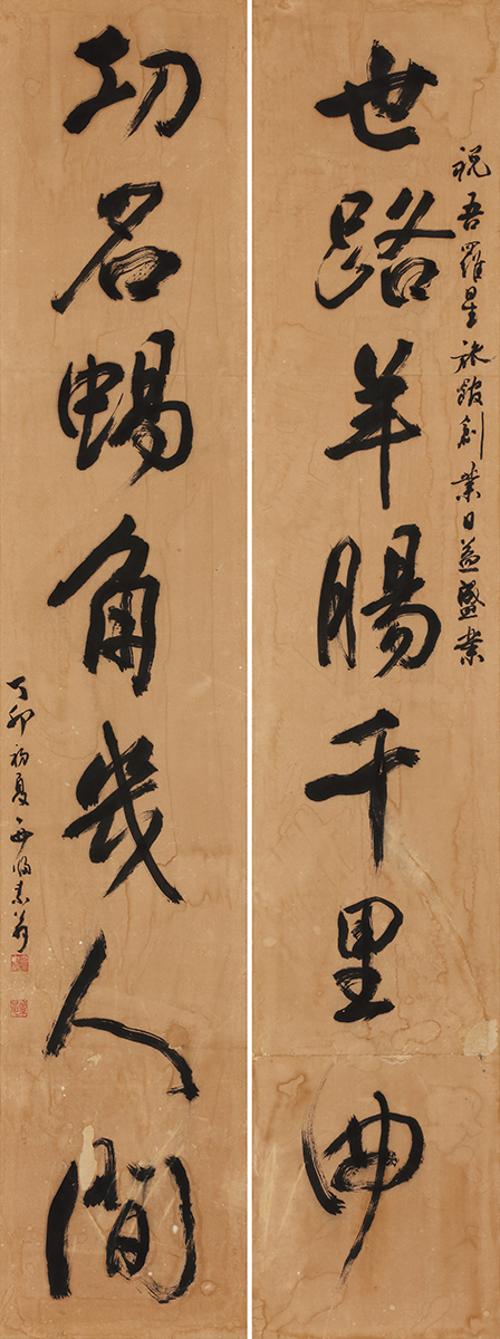 世路羊腸千里曲
祝吾羅星旅館創業日益盛業
功名蝸角幾人間
丁卯初夏